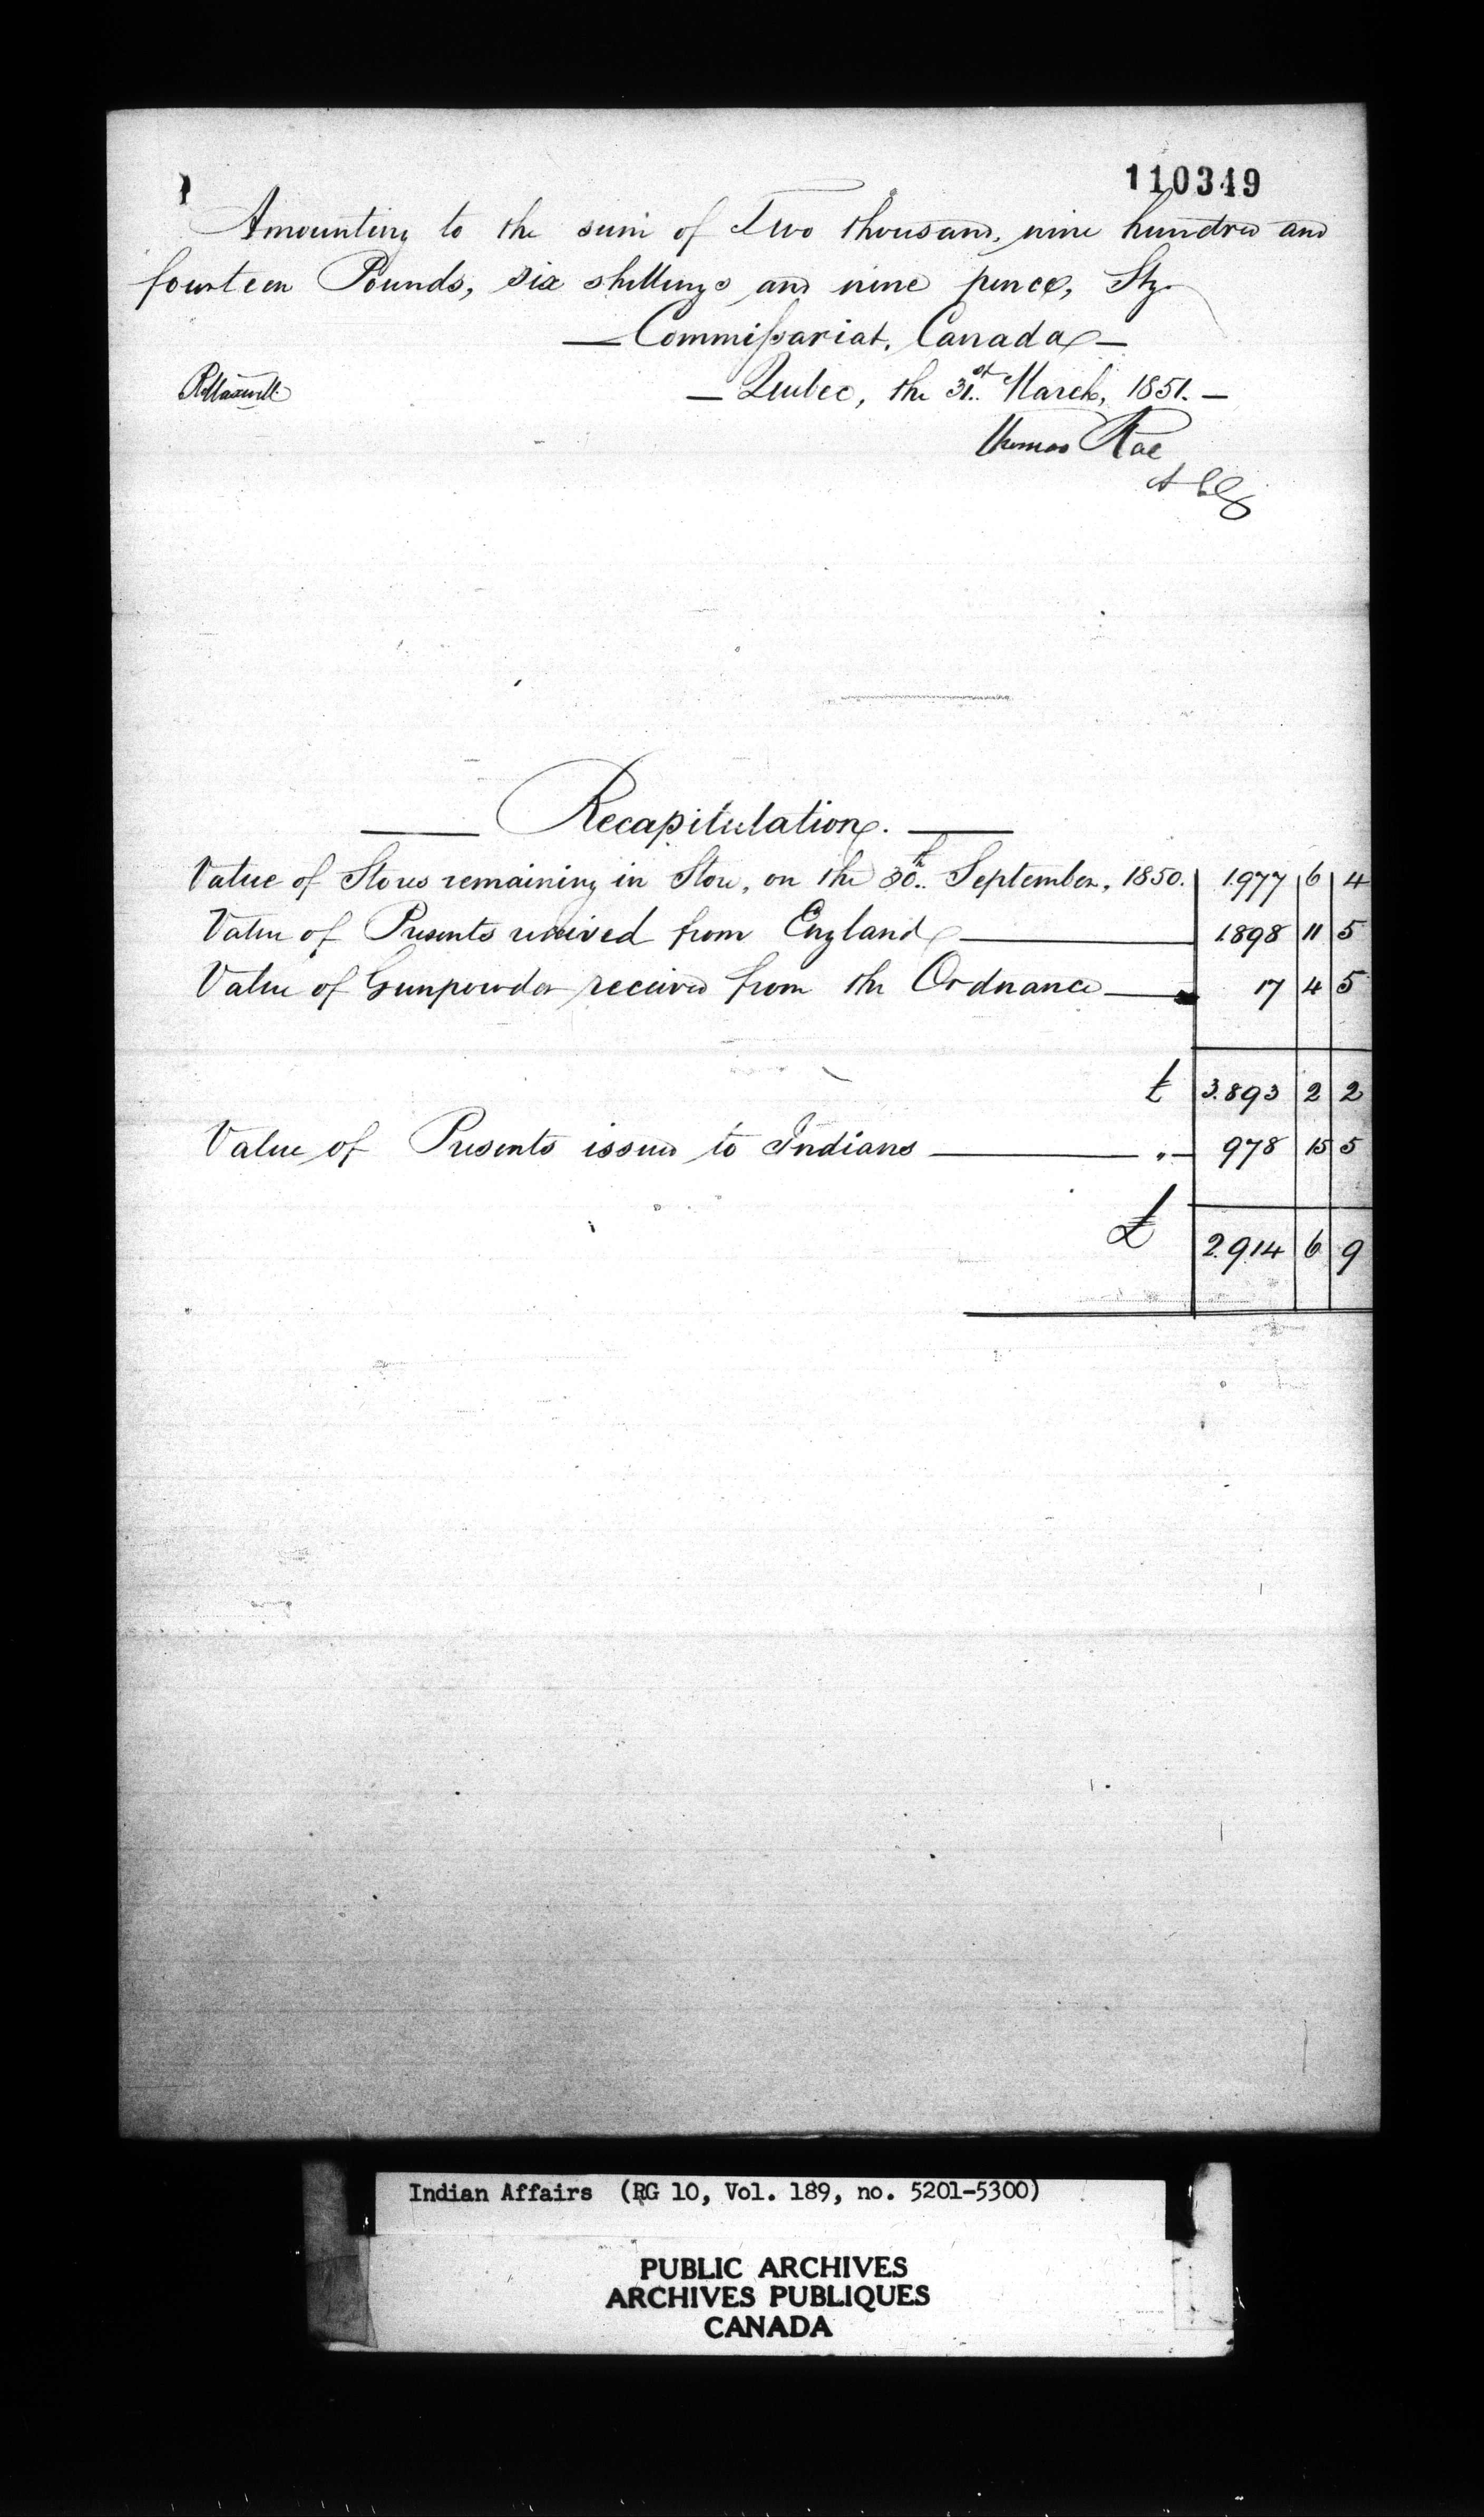 110349
Amounting to the sum of Two thousand, nine hundred and
fourteen Pounds, six shillings and nine pence, Stg.
— Commissariat, Canada —
R Maxwell
— Quebec, the 31st March, 1851. —
Thomas Rae
A C G
Recapitulation.
Value of Stores remaining in Store, on the 30th September, 1850. 1.977 6 4
Value of Presents received from England 1.898 11 5
Value of Gunpowder received from the Ordnance 17 4 5
£ 3.893 2 2
Value of Presents issued to Indians " 978 15 5
£ 2.914 6 9
Indian Affairs (RG 10, Vol. 189, no. 5201-5300)
PUBLIC ARCHIVES
ARCHIVES PUBLIQUES
CANADA